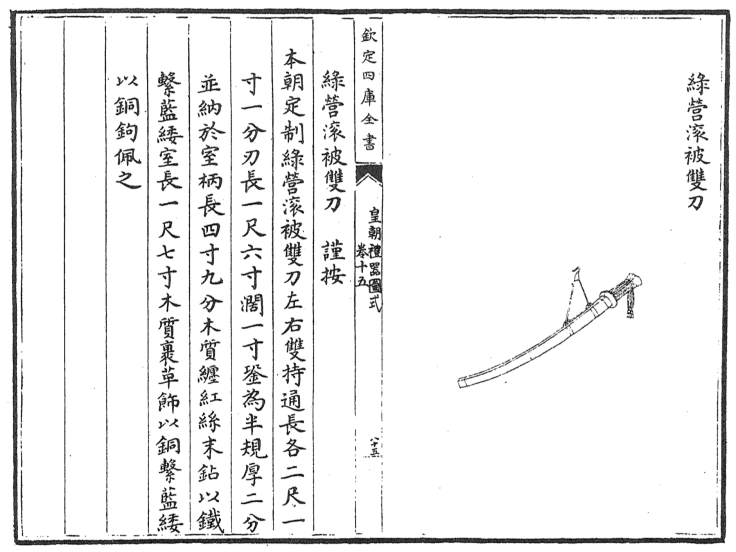 綠營滚被雙刀
欽定四庫全書
皇朝禮器圖式
卷十五
八十五
綠營滚被雙刀　謹按
本朝定制綠營滚被雙刀左右雙持通長各二尺一
寸一分刃長一尺六寸濶一寸銎為半規厚二分
並納於室柄長四寸九分木質纏紅絲末鉆以鐵
繫藍緌室長一尺七寸木質裹革飾以銅繫藍緌
以銅鉤佩之